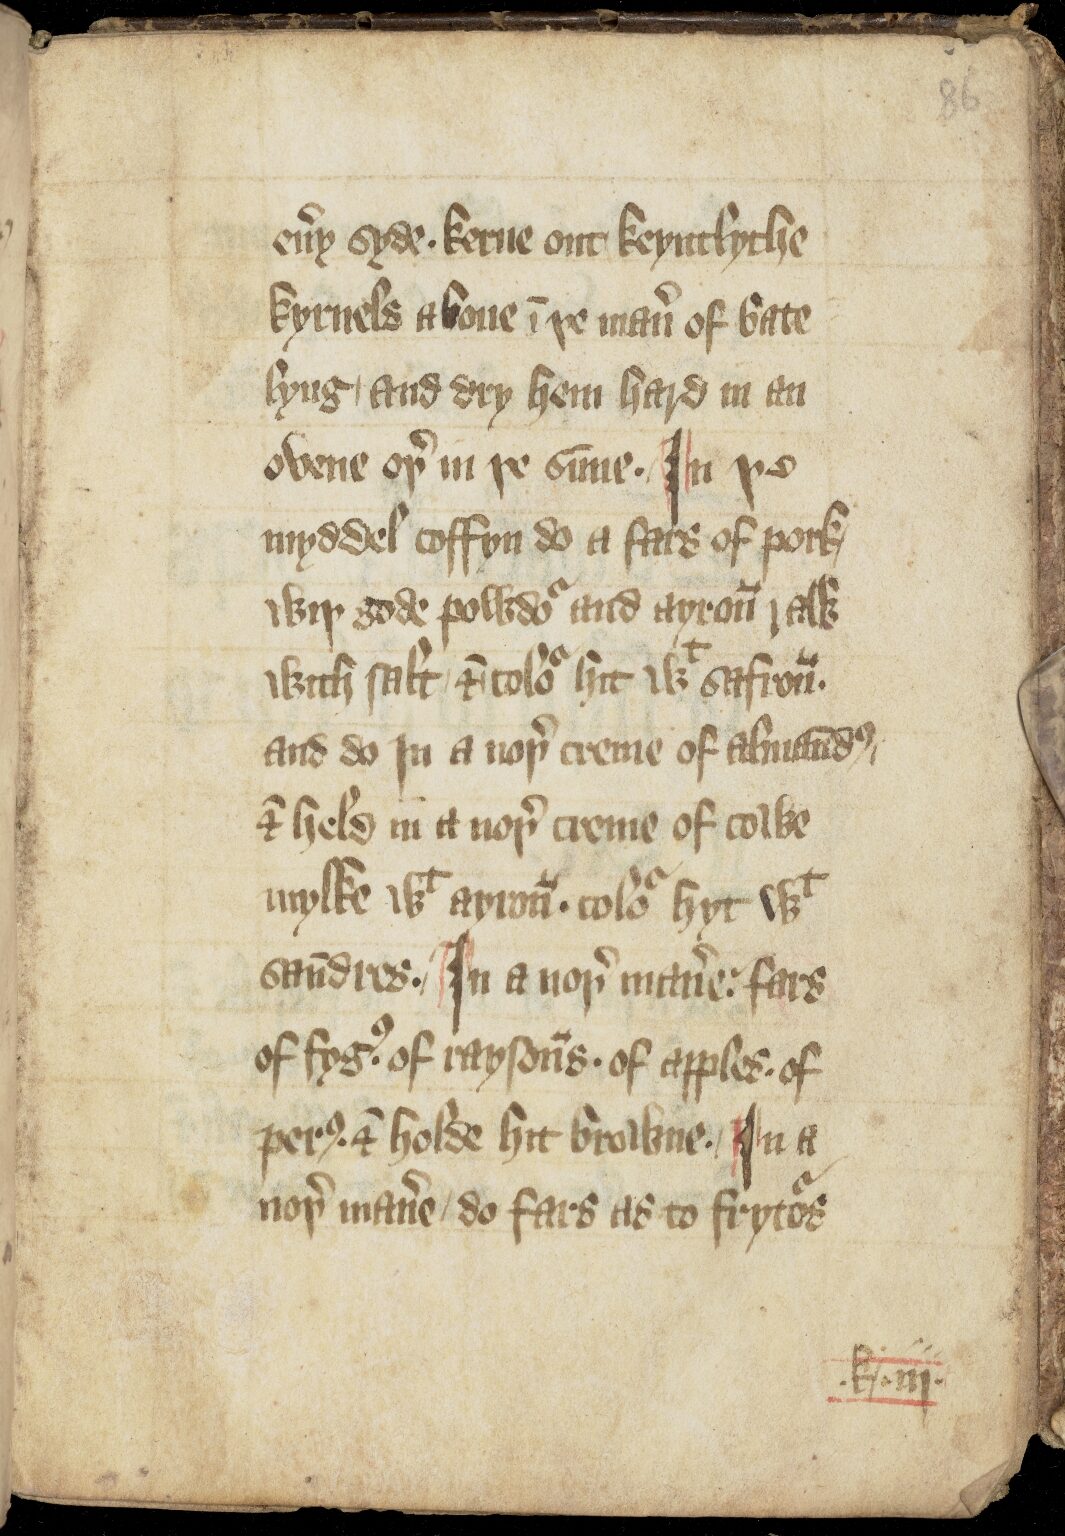 86
eu͛y syde. kerue out keyntlythe
kyrnels aboue ī þe man͛ of bate
lyng / and dry hem hard in an
ovene oþ͛ in þe sūne. / In þe
myddel coffyn do a fars of pork /
wiþ gode powdoᵃ and ayroū ꝛ alk
with salt / ⁊ coloᵃ hit wᵗ safroū.
and do In a noþ͛ creme of almaūdꝰ /
⁊ held in a noþ͛ creme of cowe
mylke wᵗ ayroū. coloᵃ hyt wᵗ
saūdres. / In a noþ͛ man͛e. fars
of fygꝰ. of raysoūs. of apples. of
perꝰ. ⁊ holde hit browne. / In a
noþ͛ man͛e / do fars as to frytoᵃs
.k. iij.